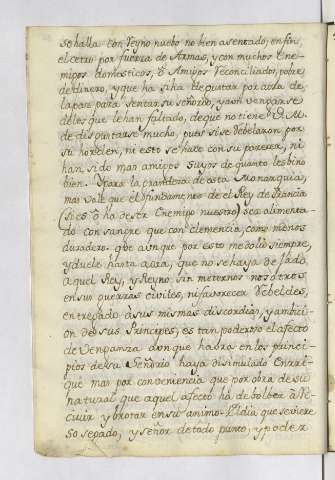 se halla con Reyno nuebo no bien asentado, en fin,
el cetro por fuerza de Armas, y con muchos Ene-
migos domesticos, ó Amigos reconciliados, pobre,
de dinero, y que ha siha de gustar por aora de
la paz para sentar su señorio, y aun vengarse
de los que le han faltado, de que no tiene V. M.
de disgustarse mucho, pues si se rebelaron por
su horden, ni esto se hace con su potencia, ni
han sido mas amigos suyos de quanto les bino
bien. Y para la grandeza de esta Monarquia,
mas vale que el fundamento de el Rey de Francia
(si es ó ha de ser Enemigo nuestro) sea alimenta-
do con sangre que con clemencia, como menos
duradero. que aunque por esto me dolió siempre,
y duele hasta aora, que no se haya dejado
aquel Rey, y Reyno sin meternos nosotros
en sus guerras civiles, ni favorecer Rebeldes,
entregado á sus mismas discordias, y ambici-
on de sus Principes; es tan poderoso el afecto
de Venganza aunque habra en los princi-
pios de su Señorio haya disimulado Enrri-
que mas por conveniencia que por obra de su
natural que aquel afecto ha de bolber á re-
civir y brotar en su animo. El dia que se viere
sosegado, y señor de todo punto, y poder